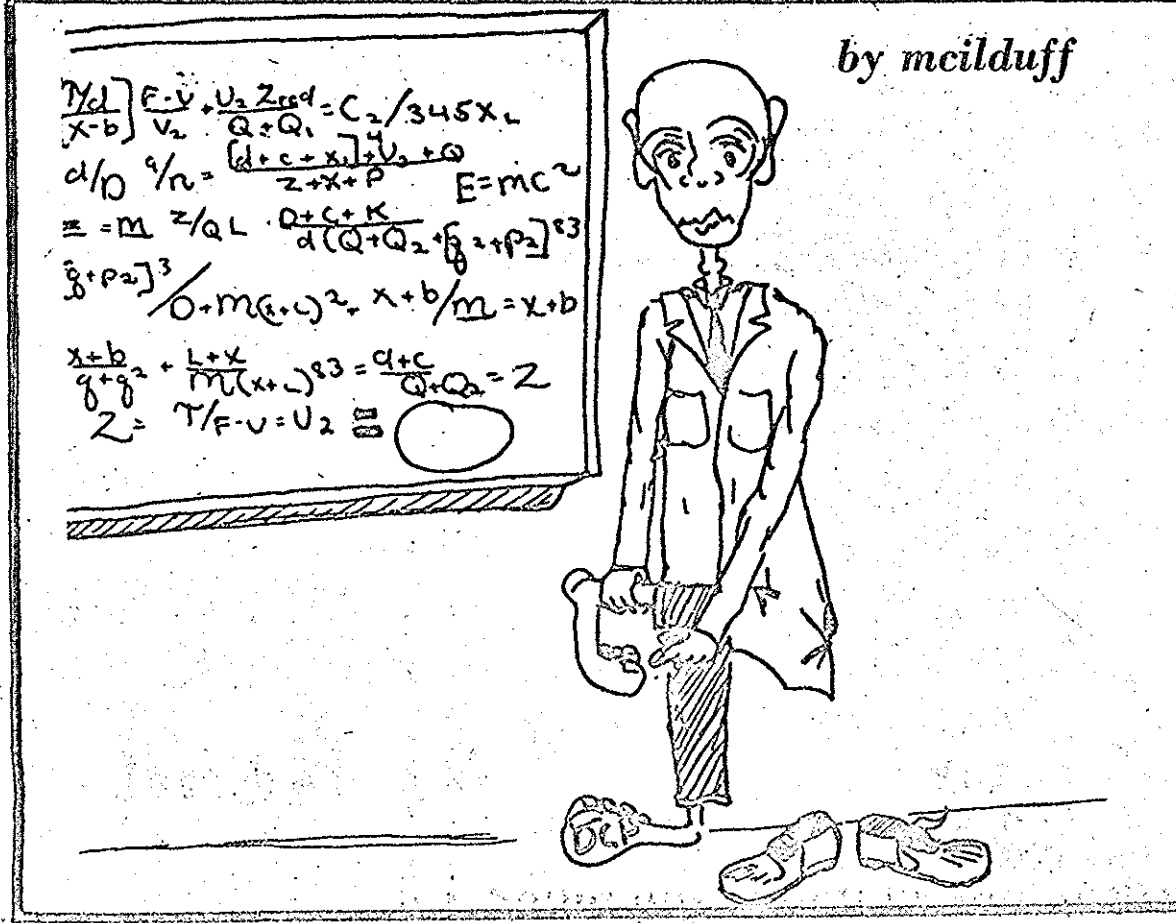 by mcilduff
T/d / x-b ] F-V / V₂ + U₂ Zred / Q+Q₁ = C₂/345X L
d/D 9/n = [d+c+x₁]⁴+U₂+Q / z+x+p E=mc²
= m Z/QL · D+C+K / d(Q+Q₂+[g²+p₂]⁸³
g+p₂]³/D+m(x+L)². x+b/m = x+b
x+b / g+g² + L+X / m(x+L)⁸³ = d+c / Q+Q₂ = Z
Z = T/F-U = U₂ =